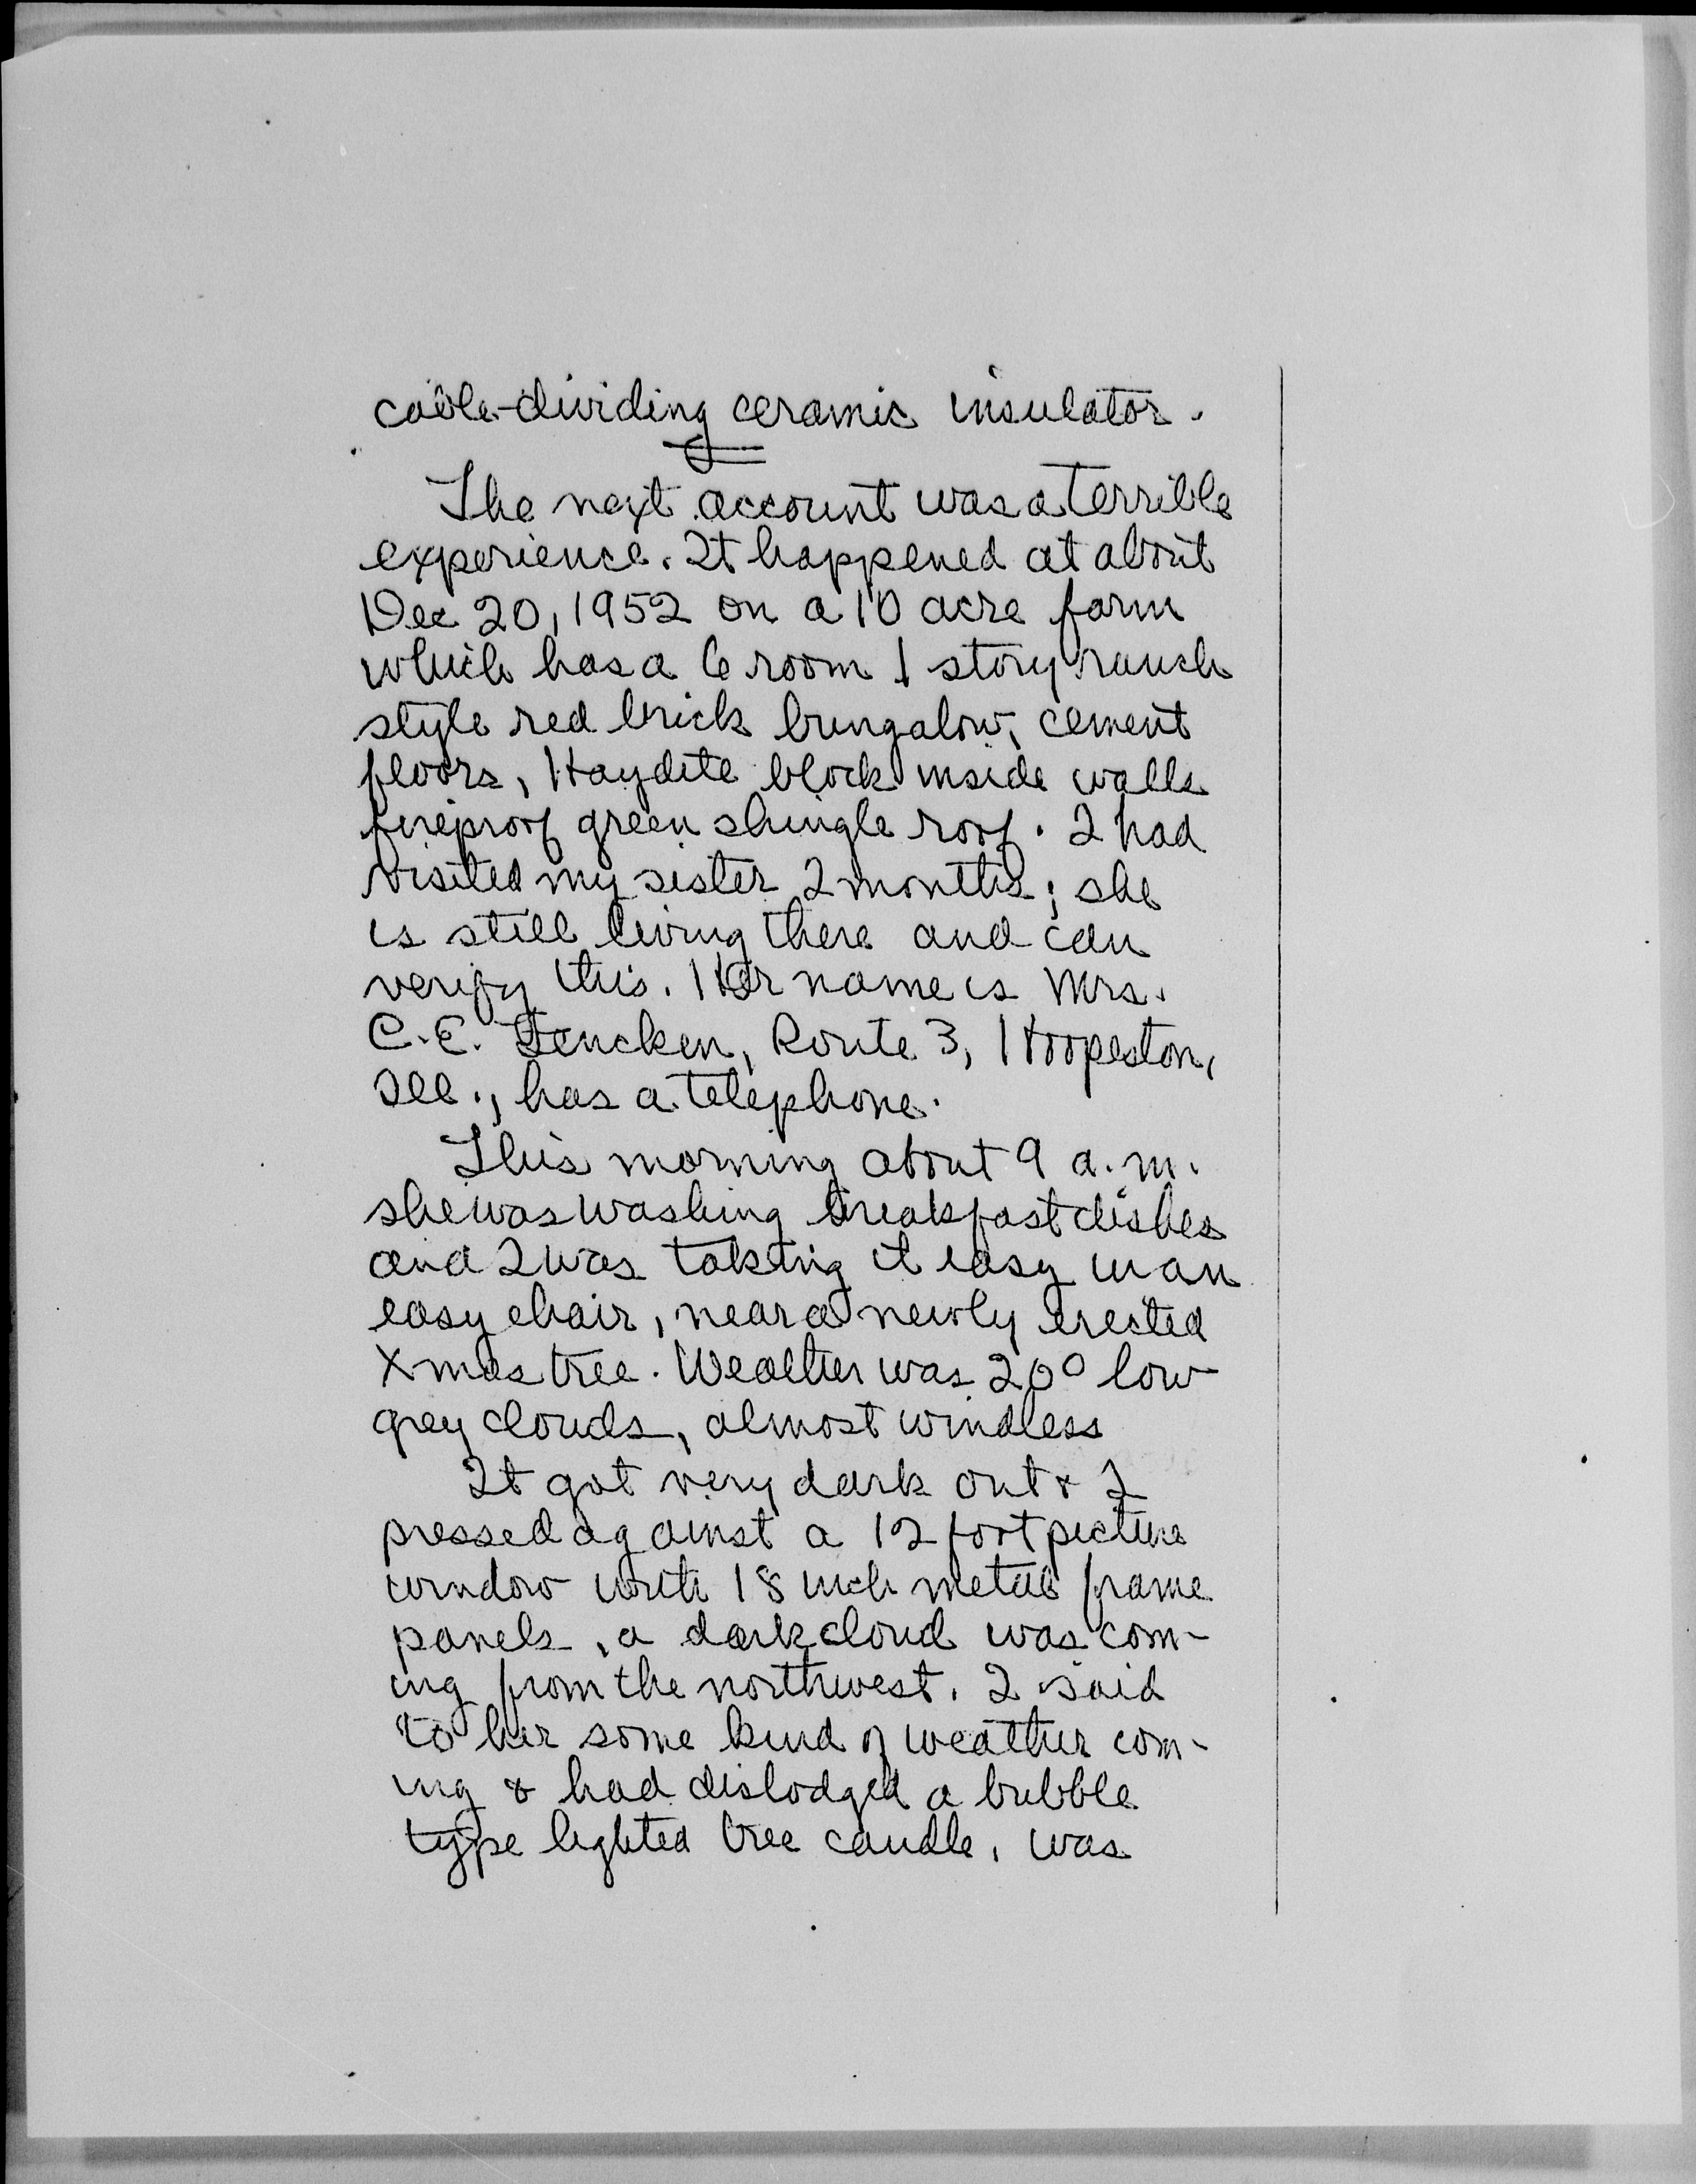 cable-dividing ceramic insulator.
The next account was a terrible
experience. It happened at about
Dec 20, 1952 on a 10 acre farm
which has a 6 room 1 story ranch
style red brick bungalow, cement
floors, Haydite block inside walls
fireproof green shingle roof. I had
visited my sister 2 months; she
is still living there and can
verify this. Her name is Mrs.
C.E. Fencken, Route 3, Hoopeston,
Ill., has a telephone.
This morning about 9 a.m.
she was washing breakfast dishes
and I was taking it easy in an
easy chair, near a newly erected
Xmas tree. Weather was 20° low
grey clouds, almost windless
It got very dark out & I
pressed against a 12 foot picture
window with 18 inch metal frame
panels, a dark cloud was com-
ing from the northwest. I said
to her some kind of weather com-
ing & had dislodged a bubble
type lighted tree candle, was